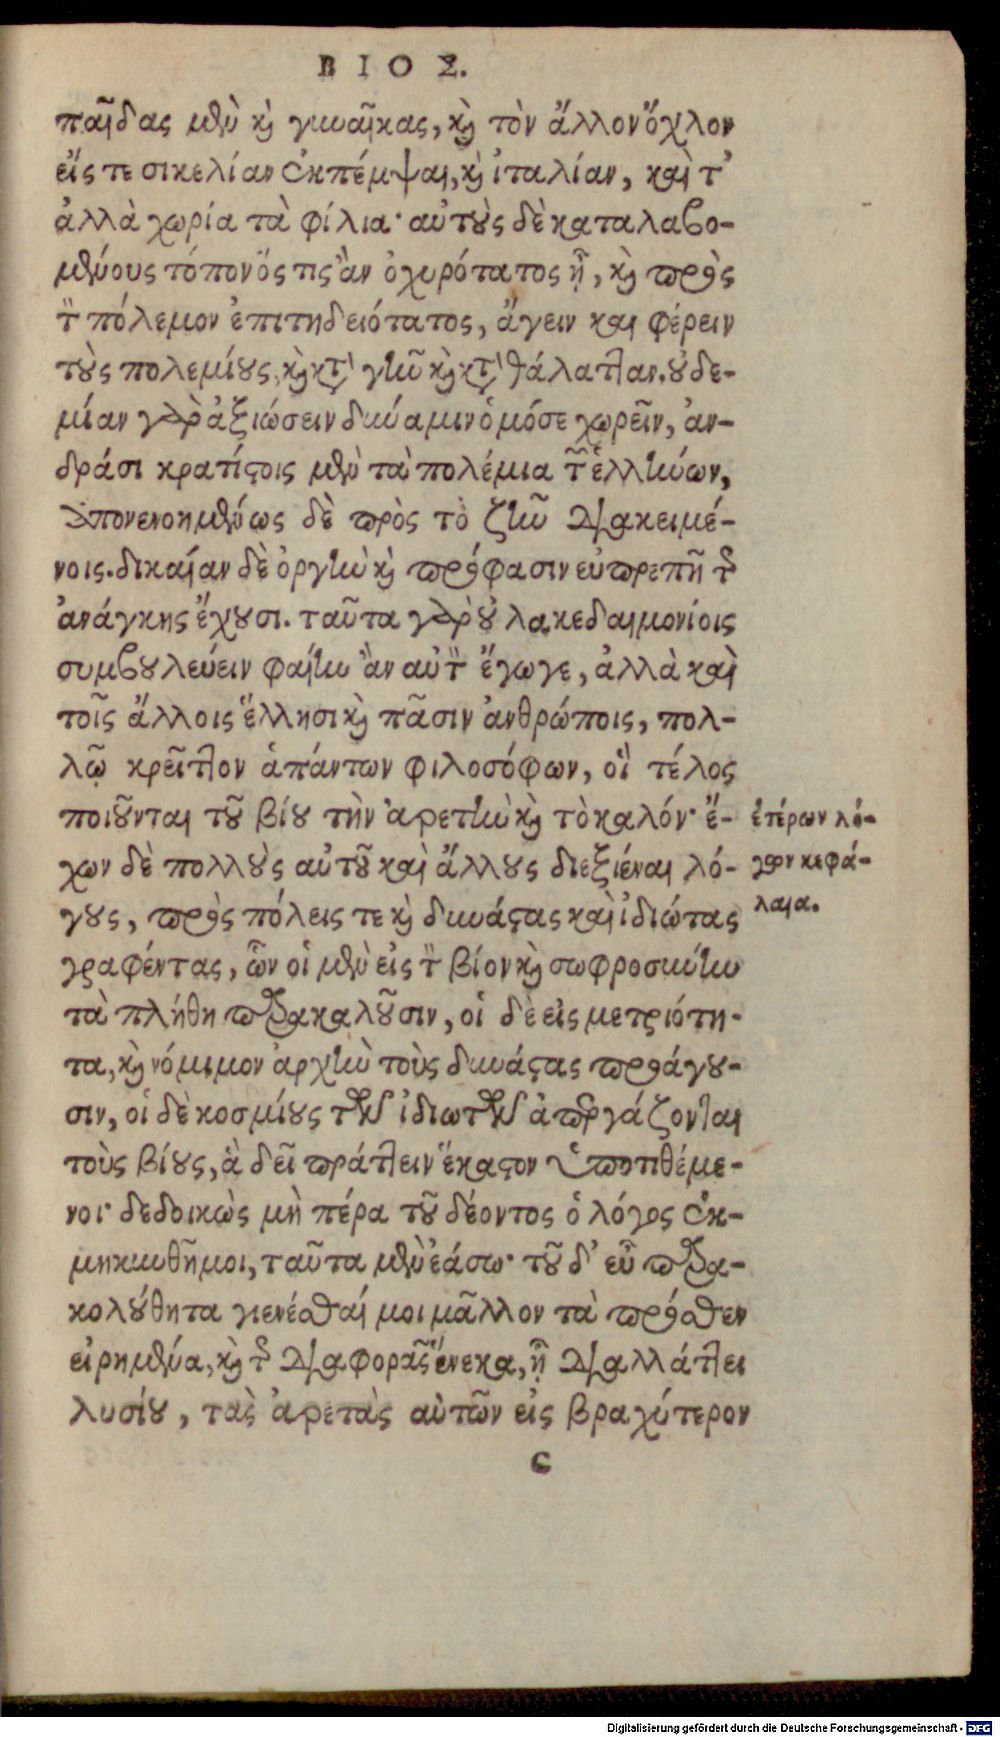 ΒΙΟΣ.
παῖδας μὲν καὶ γυναῖκας, καὶ τὸν ἄλλον ὄχλον
εἴς τε σικελίαν ἐκπέμψαι, καὶ ἰταλίαν, καὶ τ'
ἀλλὰ χωρία τὰ φίλια· αὐτοὺς δὲ καταλαβο-
μένους τόπον ὅς τις ἂν ὀχυρότατος ᾖ, καὶ πρὸς
τὸν πόλεμον ἐπιτηδειότατος, ἄγειν καὶ φέρειν
τοὺς πολεμίους, καὶ κατὰ γῆν καὶ κατὰ θάλατταν. οὐδε-
μίαν γὰρ ἀξιώσειν δύναμιν ὁμόσε χωρεῖν, ἀν-
δράσι κρατίστοις μὲν τὰ πολέμια τῶν ἑλλήνων,
ἀπονενοημένως δὲ πρὸς τὸ ζῆν διακειμέ-
νοις. δικαίαν δὲ ὀργὴν καὶ πρόφασιν εὐπρεπῆ τῆς
ἀνάγκης ἔχουσι. ταῦτα γὰρ οὐ λακεδαιμονίοις
συμβουλεύειν φαίην ἂν αὐτὸν ἔγωγε, ἀλλὰ καὶ
τοῖς ἄλλοις ἕλλησι καὶ πᾶσιν ἀνθρώποις, πολ-
λῷ κρεῖττον ἁπάντων φιλοσόφων, οἳ τέλος
ποιοῦνται τοῦ βίου τὴν ἀρετὴν καὶ τὸ καλόν· ἔ-
χων δὲ πολλοὺς αὐτοῦ καὶ ἄλλους διεξιέναι λό-
γους, πρὸς πόλεις τε καὶ δυνάστας καὶ ἰδιώτας
γραφέντας, ὧν οἱ μὲν εἰς τὸν βίον καὶ σωφροσύνην
τὰ πλήθη παρακαλοῦσιν, οἱ δὲ εἰς μετριότη-
τα, καὶ νόμιμον ἀρχὴν τοὺς δυνάστας προάγου-
σιν, οἱ δὲ κοσμίους τῶν ἰδιωτῶν ἀπεργάζονται
τοὺς βίους, ἃ δεῖ πράττειν ἕκαστον ὑποτιθέμε-
νοι· δεδοικὼς μὴ πέρα τοῦ δέοντος ὁ λόγος ἐκ-
μηκυνθῇ μοι, ταῦτα μὲν ἐάσω· τοῦ δ' εὖ παρα-
κολούθητα γιενέσθαι μοι μᾶλλον τὰ πρόσθεν
εἰρημένα, καὶ τῆς διαφορᾶς ἕνεκα, ᾗ διαλλάττει
λυσίου, τὰς ἀρετὰς αὐτῶν εἰς βραχύτερον
C
ἑτέρων λό-
γων κεφά-
λαια.
Digitalisierung gefördert durch die Deutsche Forschungsgemeinschaft - DFG